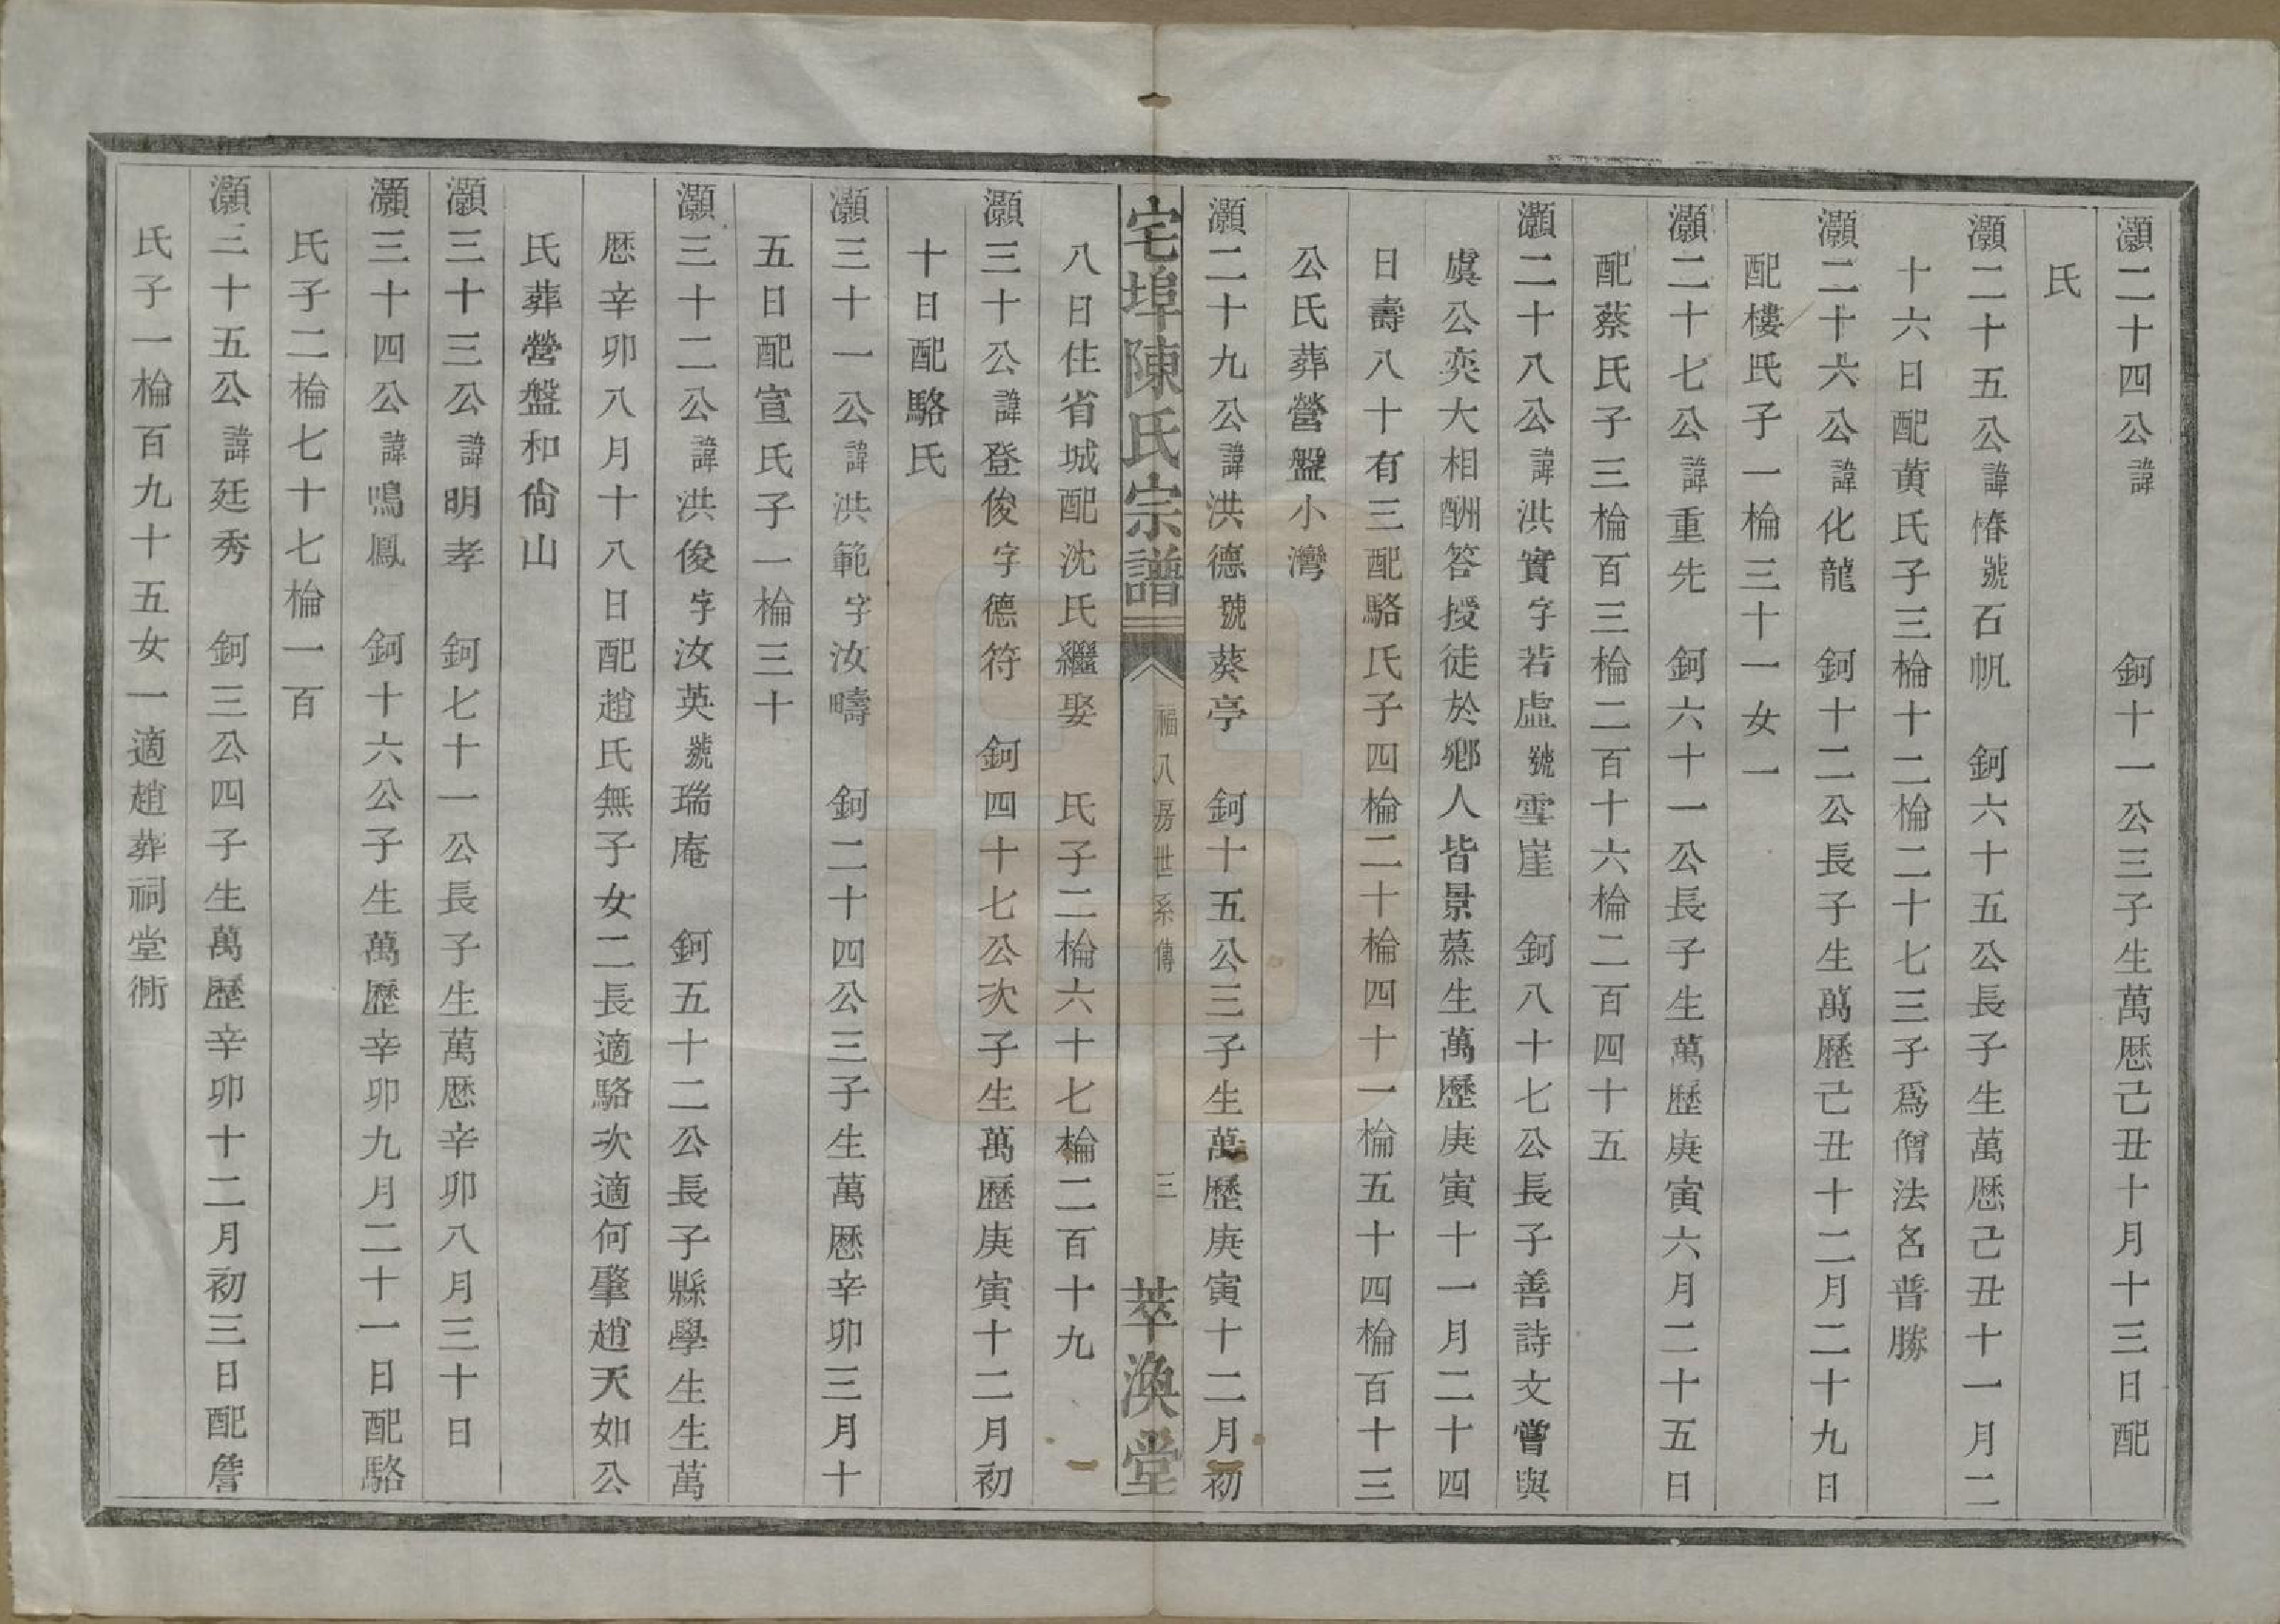 灝二十四公諱　　　鈳十一公三子生萬厯己丑十月十三日配
氏
灝二十五公諱椿號石帆　鈳六十五公長子生萬厯己丑十一月二
十六日配黄氏子三棆十二棆二十七三子爲僧法名普勝
灝二十六公諱化龍　鈳十二公長子生萬歷己丑十二月二十九日
配樓氏子一棆三十一女一
灝二十七公諱重先　鈳六十一公長子生萬歷庚寅六月二十五日
配蔡氏子三棆百三棆二百十六棆二百四十五
灝二十八公諱洪實字若虛號雪崖　鈳八十七公長子善詩文嘗與
虞公奕大相酬答授徒於鄉人皆景慕生萬歷庚寅十一月二十四
日壽八十有三配駱氏子四棆二十棆四十一棆五十四棆百十三
公氏葬營盤小灣
灝二十九公諱洪德號葵亭　鈳十五公三子生萬歷庚寅十二月初
八日住省城配沈氏繼娶　氏子二棆六十七棆二百十九
宅埠陳氏宗譜　福八房世系傳　三　萃渙堂
灝三十公諱登俊字德符　鈳四十七公次子生萬歷庚寅十二月初
十日配駱氏
灝三十一公諱洪範字汝疇　鈳二十四公三子生萬厯辛卯三月十
五日配宣氏子一棆三十
灝三十二公諱洪俊字汝英號瑞庵　鈳五十二公長子縣學生生萬
厯辛卯八月十八日配趙氏無子女二長適駱次適何肇趙天如公
氏葬營盤和尙山
灝三十三公諱明孝　鈳七十一公長子生萬厯辛卯八月三十日
灝三十四公諱鳴鳳　鈳十六公子生萬歷辛卯九月二十一日配駱
氏子二棆七十七棆一百
灝三十五公諱廷秀　鈳三公四子生萬歷辛卯十二月初三日配詹
氏子一棆百九十五女一適趙葬祠堂衕